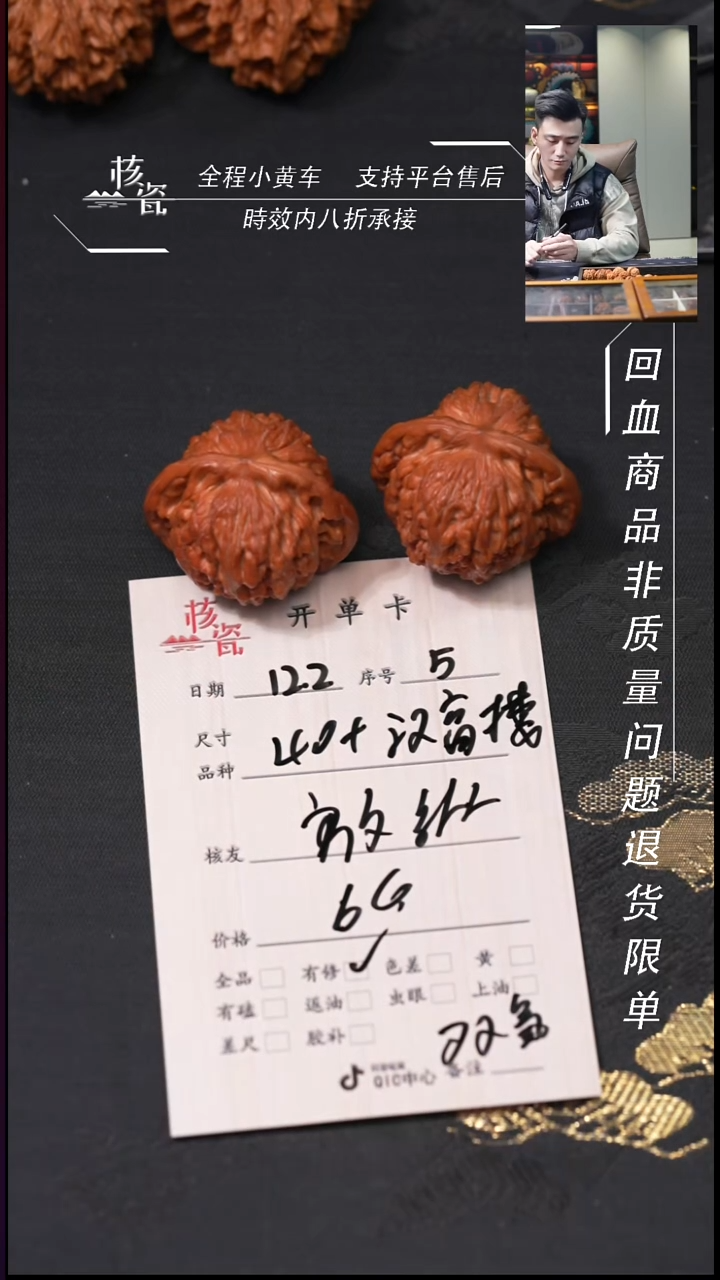 核瓷
全程小黄车 支持平台售后
時效内八折承接
回血商品非质量问题退货限单
核瓷 开单卡
日期 12.2 序号 5
尺寸 40+
品种
核友
价格 6G
全品 有修 ✓ 色差 黄
有磕 返油 虫眼 上油
差尺 胶补
QIC中心 备注